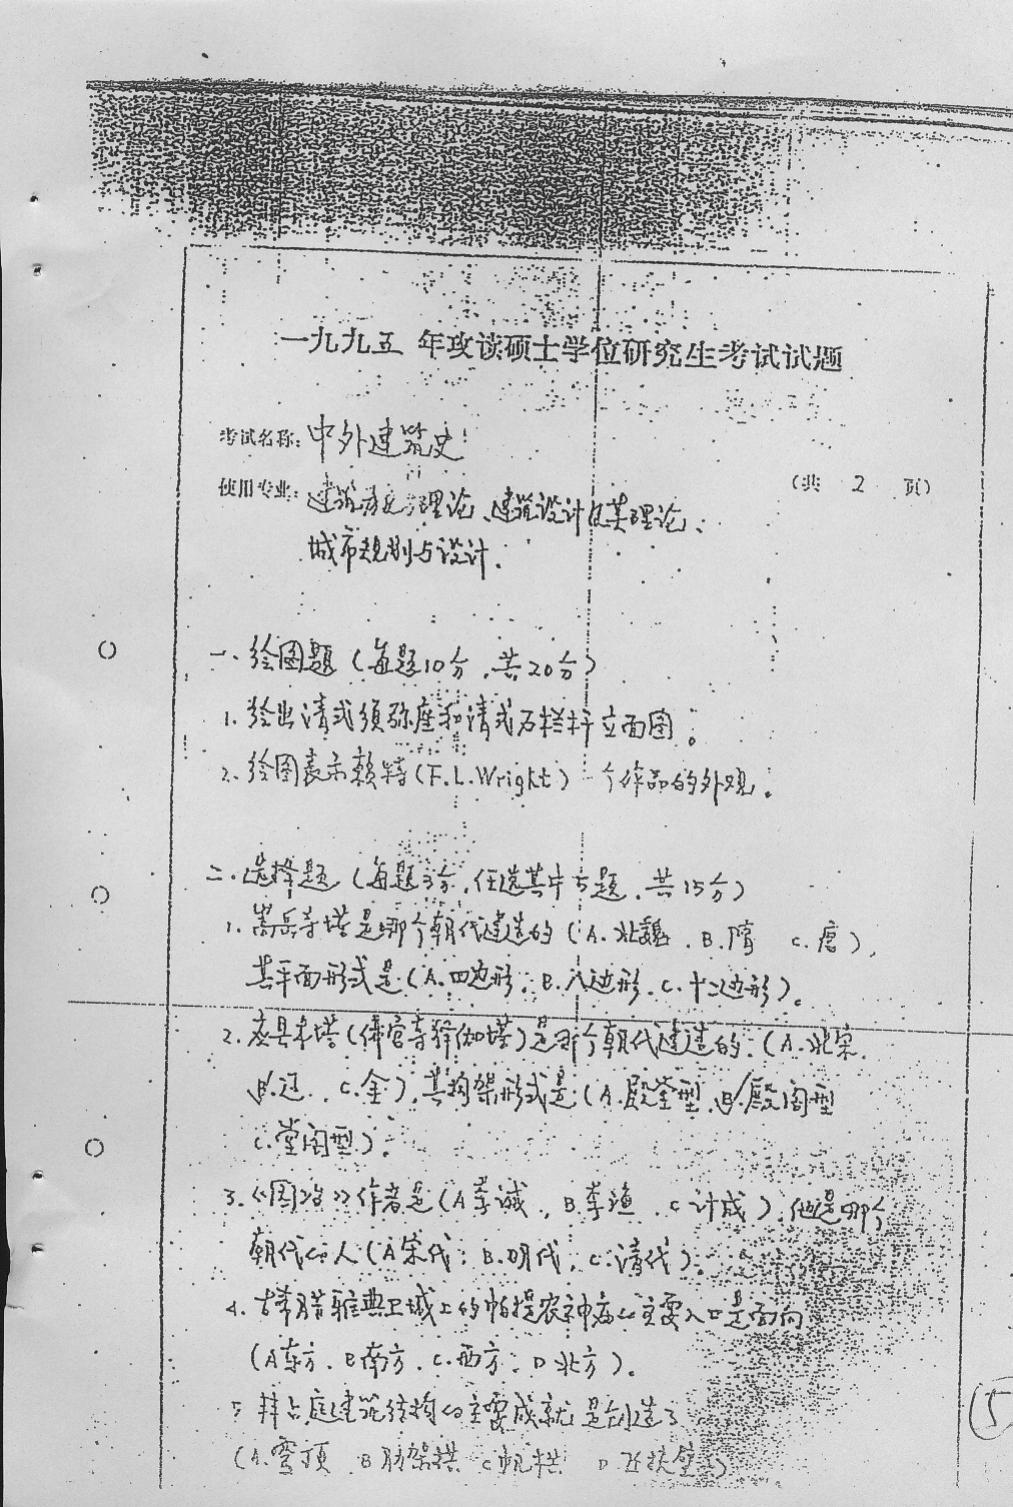 一九九五 年攻读硕士学位研究生考试试题
考试名称: 中外建筑史
使用专业: 建筑历史与理论、建筑设计及其理论、
(共 2 页)
城市规划与设计.
一、绘图题(每题10分,共20分)
1. 绘出清式须弥座和清式石栏杆立面图。
2. 绘图表示赖特(F.L.Wright)一个作品的外观。
二.选择题(每题3分,任选其中五题,共15分)
1. 嵩岳寺塔是哪个朝代建造的(A.北魏.B.隋 C.唐),
其平面形式是(A.四边形;B.八边形.C.十二边形)。
2. 应县木塔(佛宫寺释伽塔)是哪个朝代建造的:(A.北宋.
B.辽. C.金),其构架形式是(A.殿堂型.B.殿阁型
C.堂阁型).
3.《园冶》作者是(A李诫,B李渔 C计成),他是哪个
朝代的人(A宋代;B.明代;C.清代).
4. 古希腊雅典卫城上的帕提农神庙的主要入口是面向
(A东方.B南方.C.西方;D北方).
5 拜占庭建筑结构的主要成就是创造了
(A.穹顶 B肋架拱 C帆拱 D飞扶壁)
5